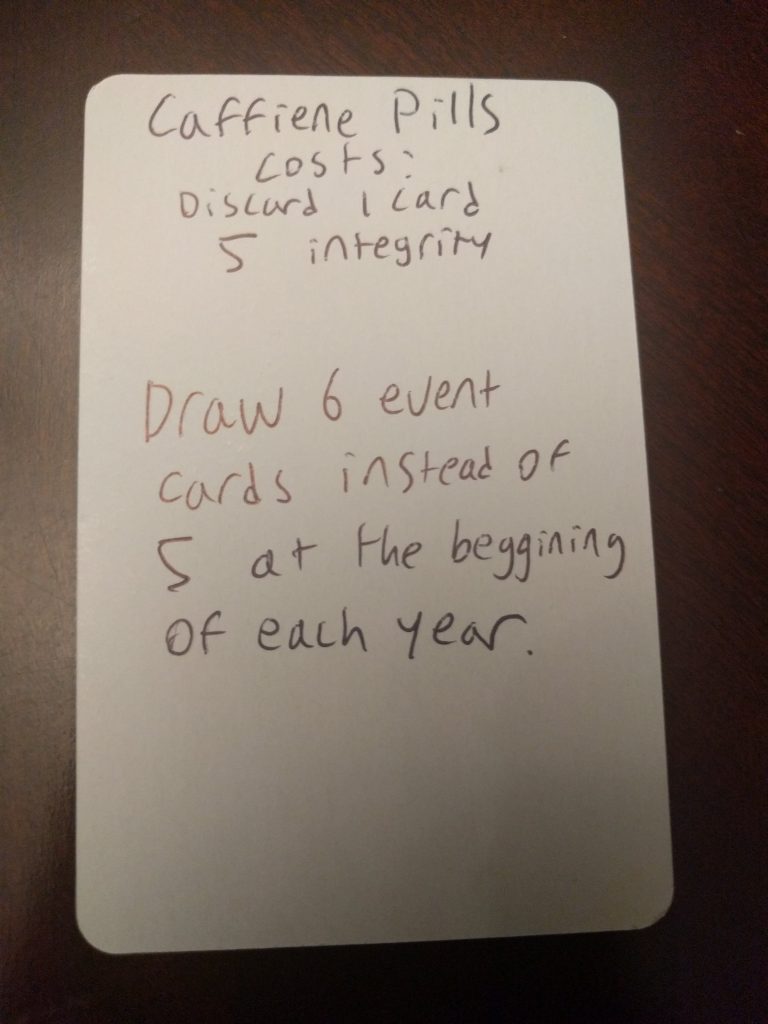 Caffiene Pills
costs:
Discard 1 card
5 integrity
Draw 6 event
cards instead of
5 at the beggining
of each year.